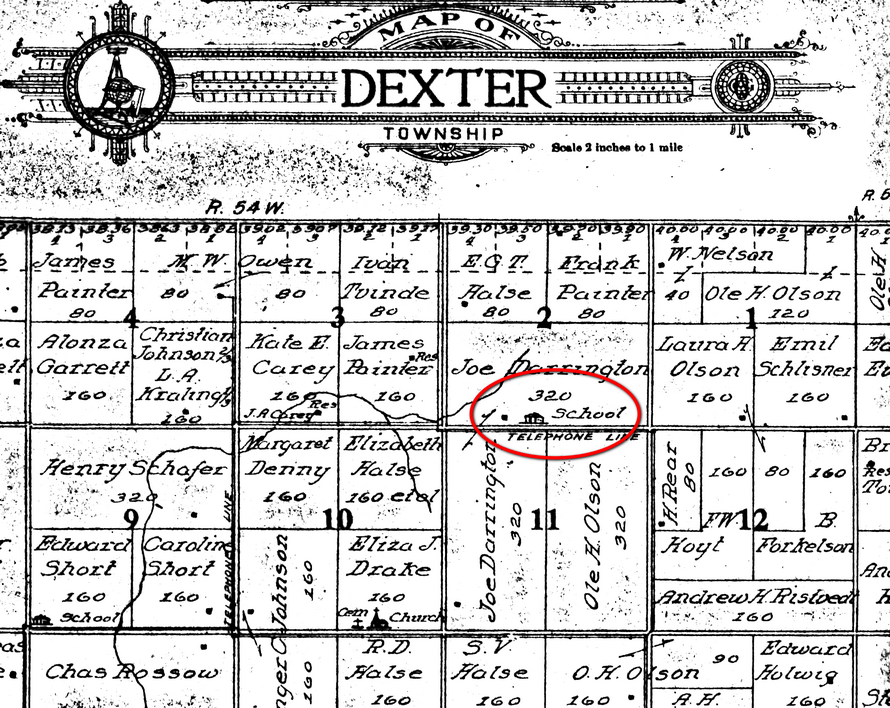 MAP OF
DEXTER
TOWNSHIP
Scale 2 inches to 1 mile
R. 54 W.
James
Painter
80
M.W.
80
4
Owen
80
Ivan
Tvinde
80
3
E.G.T.
Halse
80
Frank
Painter
80
2
W. Nelson
40
Ole H. Olson
120
1
Ole H.
Alonza
Garrett
160
Christian
Johnson &
L.A.
Kralingh
160
Kate E.
Carey
160
Res
J.A. Carey
James
Painter
Res
160
Joe Darrington
320
School
TELEPHONE LINE
Laura A
Olson
160
Emil
Schlisner
160
Henry Schafer
320
9
TELEPHONE LINE
Margaret
Denny
160
Elizabeth
Halse
160 etal
10
Joe Darrington
320
11
Ole H. Olson
320
H. Rear
80
160
80
160
F.W.
12
B.
Hoyt
Forkelson
Edward
Short
160
School
Caroline
Short
160
Johnson
160
Eliza J.
Drake
160
Cem
Church
Andrew H. Ristvedt
160
Chas Rossow
160
R.D.
Halse
160
S.V
Halse
160
O.H. Olson
160
90
A.H.
Edward
Holwig
160